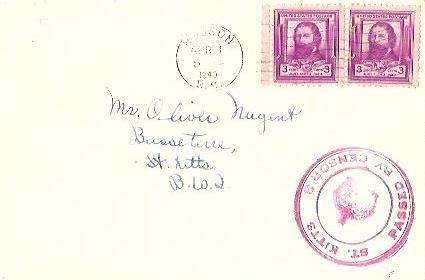 UNITED STATES POSTAGE
UNITED STATES POSTAGE
3 3
3 3
APR 1
1940
Mr. Oliver Nugent
Bassetere,
St. Kitts
B.W.I.
PASSED BY CENSORS
ST. KITTS